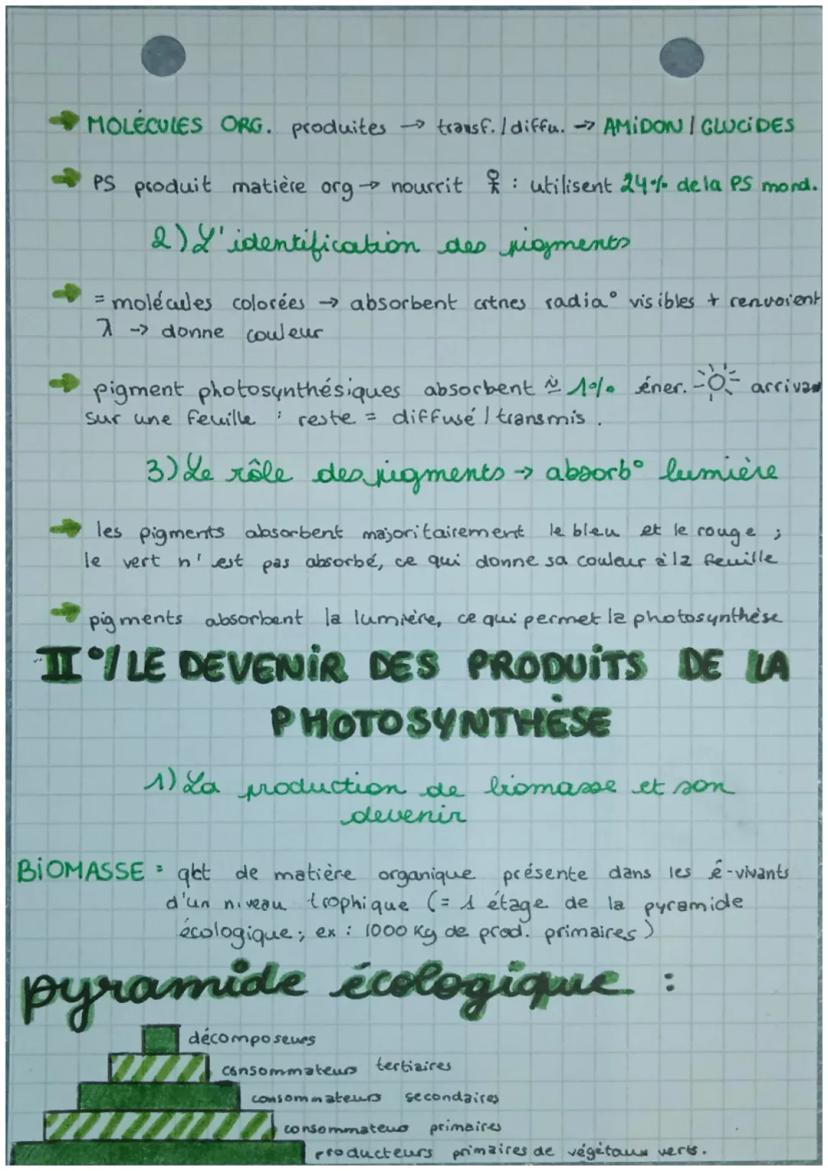 → MOLÉCULES ORG. produites → transf. / diffu. → AMIDON / GLUCIDES
→ PS produit matière org → nourrit : utilisent 24% de la PS mond.
2) L'identification des pigments
→ = molécules colorées → absorbent crtnes radia° visibles + renvoient
λ → donne couleur
→ pigment photosynthésiques absorbent ≈ 1% éner. arrivan
sur une feuille ; reste = diffusé / transmis.
3) Le rôle des pigments → absorb° lumière
→ les pigments absorbent majoritairement le bleu et le rouge ;
le vert n'est pas absorbé, ce qui donne sa couleur à la feuille
→ pigments absorbent la lumière, ce qui permet la photosynthèse
II°/ LE DEVENIR DES PRODUITS DE LA
PHOTOSYNTHÈSE
1) La production de biomasse et son
devenir
BIOMASSE = qtt de matière organique présente dans les ê-vivants
d'un niveau trophique (= 1 étage de la pyramide
écologique ; ex : 1000 Kg de prod. primaires)
pyramide écologique :
décomposeurs
consommateurs tertiaires
consommateurs secondaires
consommateurs primaires
producteurs primaires de végétaux verts.